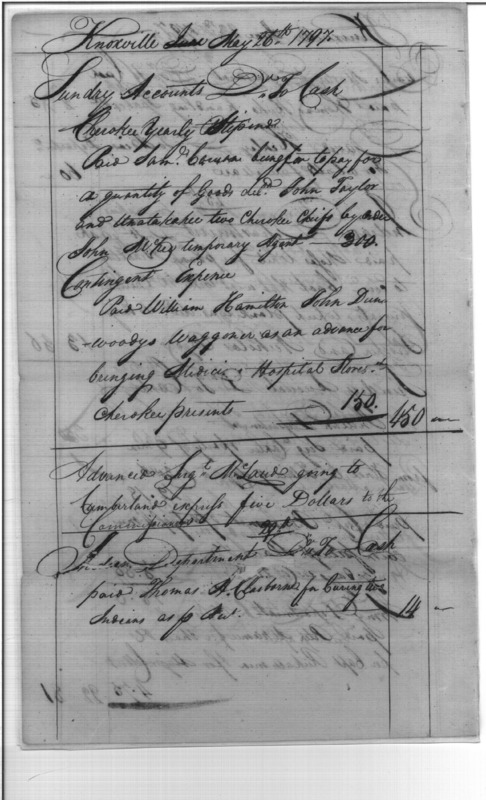 Knoxville June May 26th 1797.
Sundry Accounts Drs To Cash
Cherokee Yearly Stipend
Paid Saml. to pay for
a quantity of Goods deld. John Taylor
and two Cherokee Chiefs by order
John McKee temporary Agent — 300.
Contingent Expence
Paid William Hamilton John Dun
-woodys Waggoner as an advance for
bringing Medicine & Hospital Stores &
Cherokee presents 150. 450 —
Advanced Sergt. McLaud going to
Cumberland express five Dollars to the
Commissioners
29th
Indian Department Dr To Cash
paid Thomas A. Claiborne for Curing two
Indians as p Rect. 14 —